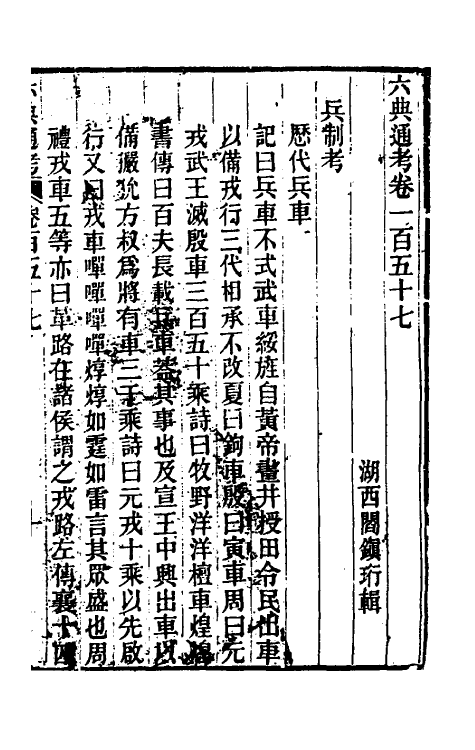 六典通考卷一百五十七
湖西閻鎭珩輯
兵制考
歷代兵車
記曰兵車不式武車綏旌自黃帝畫井授田令民出車
以備戎行三代相承不改夏曰鉤車殷曰寅車周曰元
戎武王滅殷車三百五十乘詩曰牧野洋洋檀車煌煌
書傳曰百夫長載兵車葢其事也及宣王中興出車以
備玁狁方叔爲將有車三千乘詩曰元戎十乘以先啟
行又曰戎車嘽嘽嘽嘽焞焞如霆如雷言其眾盛也周
禮戎車五等亦曰革路在諸侯謂之戎路左傳襄十四
六典通考 卷百五十七